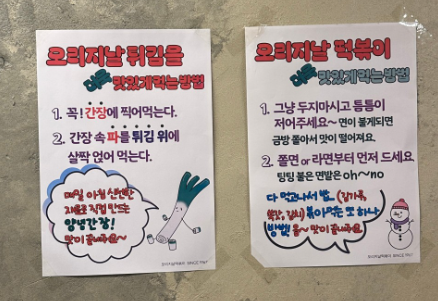 오리지날 튀김을
더욱 맛있게 먹는 방법
1. 꼭! 간장에 찍어먹는다.
2. 간장 속 파를 튀김 위에
살짝 얹어 먹는다.
매일 아침 신선한
재료로 직접 만드는
양념간장!
맛이 끝내줘요~
오리지날 떡볶이
더욱 맛있게 먹는 방법
1. 그냥 두지마시고 틈틈이
저어주세요~ 면이 불게되면
금방 쫄아서 맛이 떨어져요.
2. 쫄면 or 라면부터 먼저 드세요.
팅팅 불은 면발은 oh~no
다 먹고나서 밥 (김가루,
김치) 볶아먹는 또 하나
방법 맛이 끝내줘요~